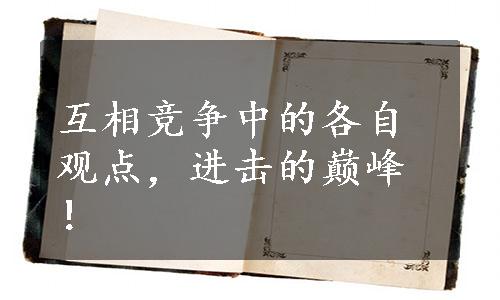 互相竞争中的各自
观点，进击的巅峰
！